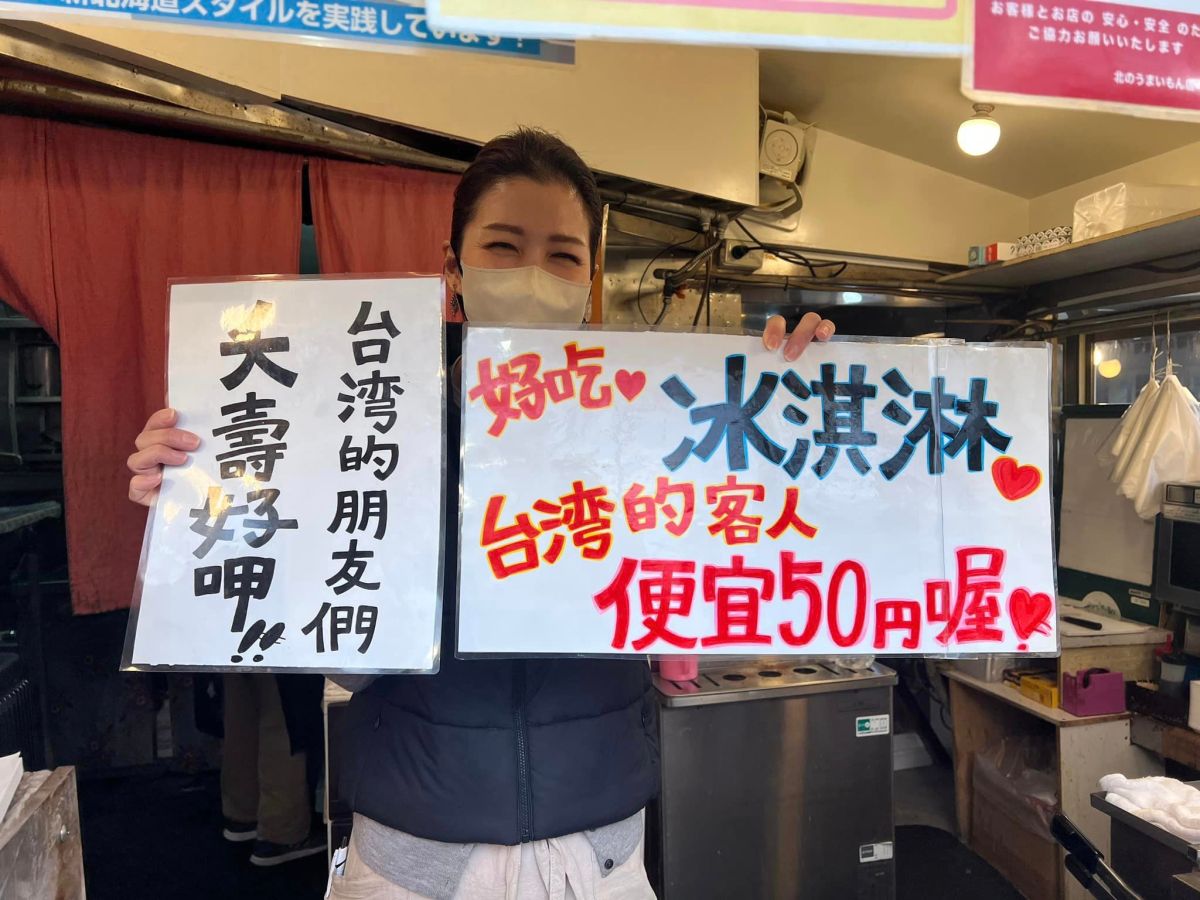 新北海道スタイルを実践しています!
お客様とお店の 安心・安全 のた
ご協力お願いいたします
北のうまいもん
台湾的朋友們
大壽好呷!!
好吃♥ 冰淇淋♥
台湾的客人
便宜50円喔♥!